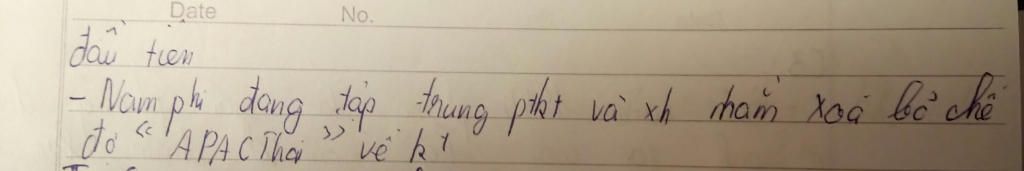 Date No.
đầu tiên
- Nam phi đang tập trung ptkt và xh nhằm xoá bỏ chế
độ "APACThai" về kt